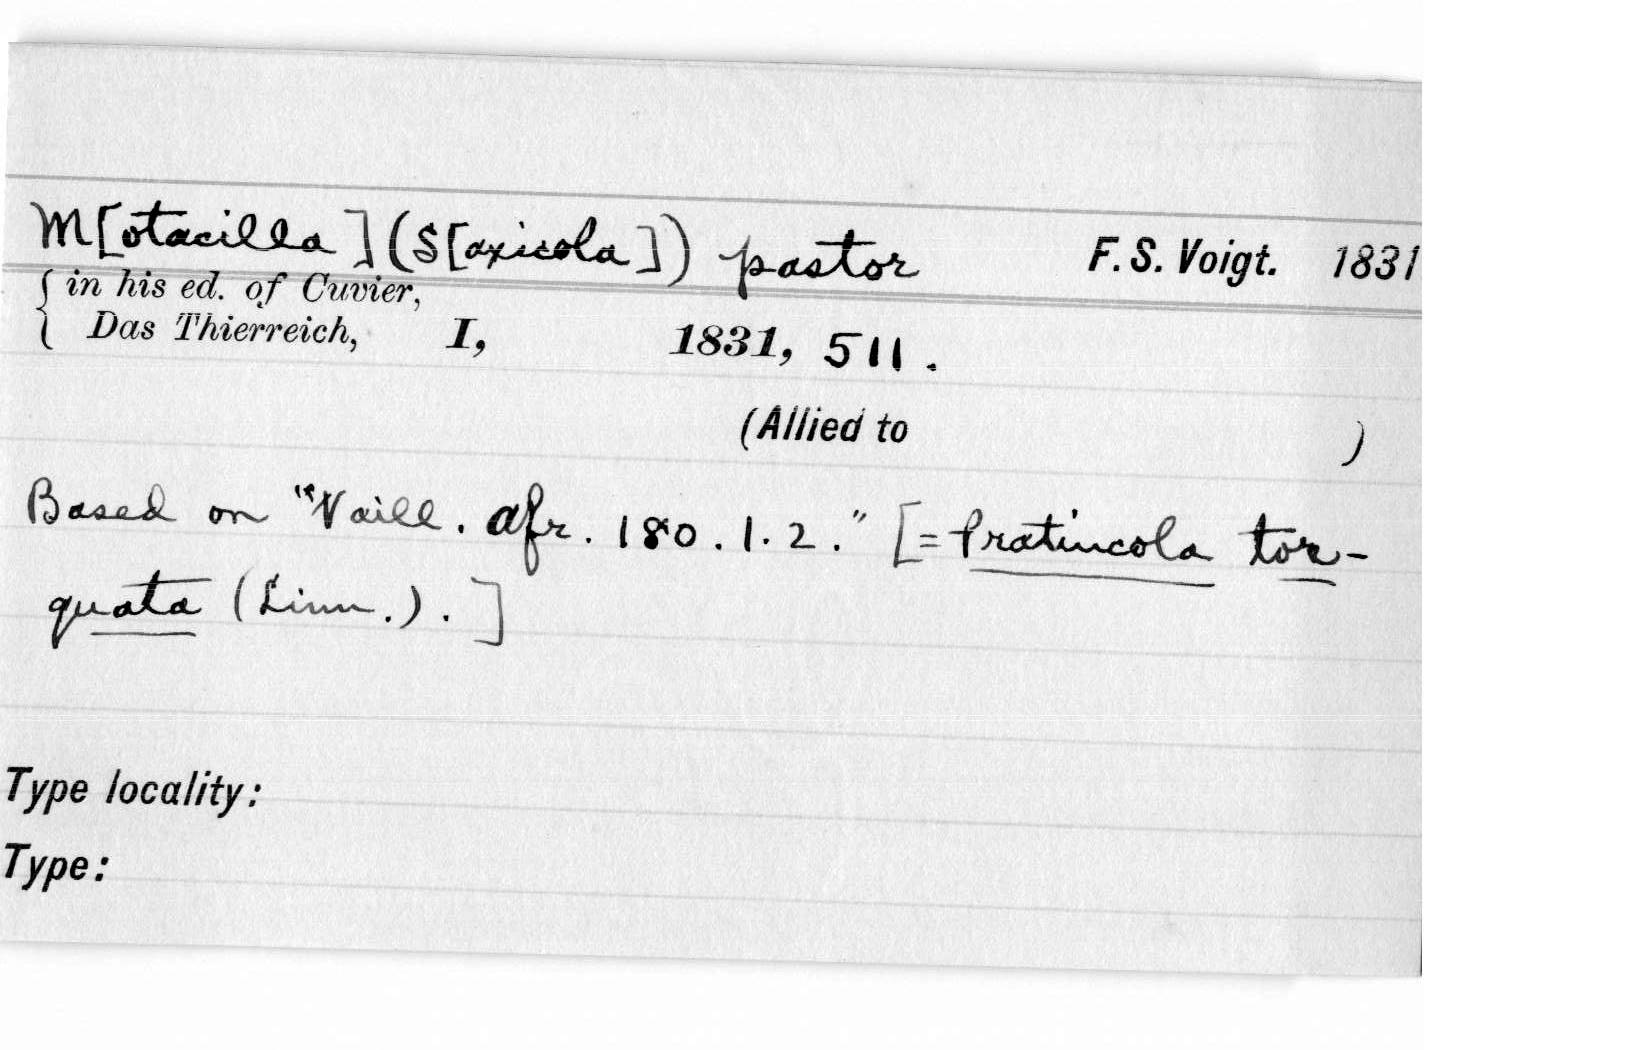 M[otacilla](S[axicola]) pastor F. S. Voigt. 1831
in his ed. of Cuvier,
Das Thierreich, I, 1831, 511.
(Allied to )
Based on "Vaill. Afr. 180.1.2." [=Pratincola tor-
quata (Linn.).]
Type locality:
Type: